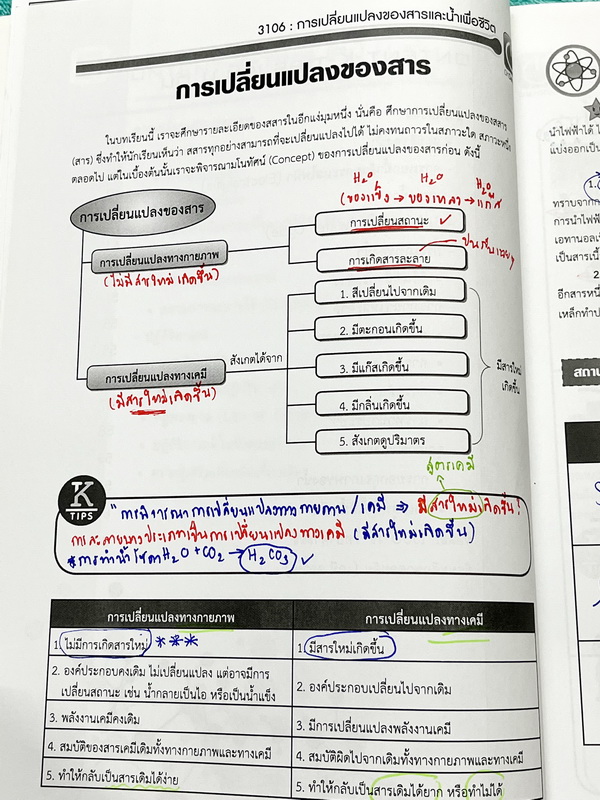 3106 : การเปลี่ยนแปลงของสารและน้ำเพื่อชีวิต
การเปลี่ยนแปลงของสาร
ในบทเรียนนี้ เราจะศึกษารายละเอียดของสสารในอีกแง่มุมหนึ่ง นั่นคือ ศึกษาการเปลี่ยนแปลงของสสาร
(สาร) ซึ่งทำให้นักเรียนเห็นว่า สสารทุกอย่างสามารถที่จะเปลี่ยนแปลงไปได้ ไม่คงทนถาวรในสภาวะใด สภาวะหนึ่ง
ตลอดไป แต่ในเบื้องต้นนั้นเราจะพิจารณามโนทัศน์ (Concept) ของการเปลี่ยนแปลงของสารก่อน ดังนี้
H₂O H₂O H₂O
(ของแข็ง → ของเหลว → แก๊ส
การเปลี่ยนแปลงของสาร
การเปลี่ยนสถานะ ✓
การเปลี่ยนแปลงทางกายภาพ
(ไม่มีสารใหม่เกิดขึ้น)
การเกิดสารละลาย
1. สีเปลี่ยนไปจากเดิม
2. มีตะกอนเกิดขึ้น
สังเกตได้จาก
3. มีแก๊สเกิดขึ้น
มีสารใหม่
เกิดขึ้น
การเปลี่ยนแปลงทางเคมี
(มีสารใหม่เกิดขึ้น)
4. มีกลิ่นเกิดขึ้น
5. สังเกตดูปริมาตร
สูตรเคมี
K
TIPS
"การพิจารณาการเปลี่ยนแปลงทางกายภาพ / เคมี ⇒ มีสารใหม่เกิดขึ้น!
การละลายบางประเภทเป็นการเปลี่ยนแปลงทางเคมี (มีสารใหม่เกิดขึ้น)
*การทำน้ำโซดา H₂O + CO₂ → H₂CO₃ ✓
การเปลี่ยนแปลงทางกายภาพ การเปลี่ยนแปลงทางเคมี
1. ไม่มีการเกิดสารใหม่ *** 1. มีสารใหม่เกิดขึ้น
2. องค์ประกอบคงเดิม ไม่เปลี่ยนแปลง แต่อาจมีการ
เปลี่ยนสถานะ เช่น น้ำกลายเป็นไอ หรือเป็นน้ำแข็ง
2. องค์ประกอบเปลี่ยนไปจากเดิม
3. พลังงานเคมีคงเดิม 3. มีการเปลี่ยนแปลงพลังงานเคมี
4. สมบัติของสารเคมีเดิมทั้งทางกายภาพและทางเคมี 4. สมบัติผิดไปจากเดิมทั้งทางกายภาพและทางเคมี
5. ทำให้กลับเป็นสารเดิมได้ง่าย 5. ทำให้กลับเป็นสารเดิมได้ยาก หรือทำไม่ได้